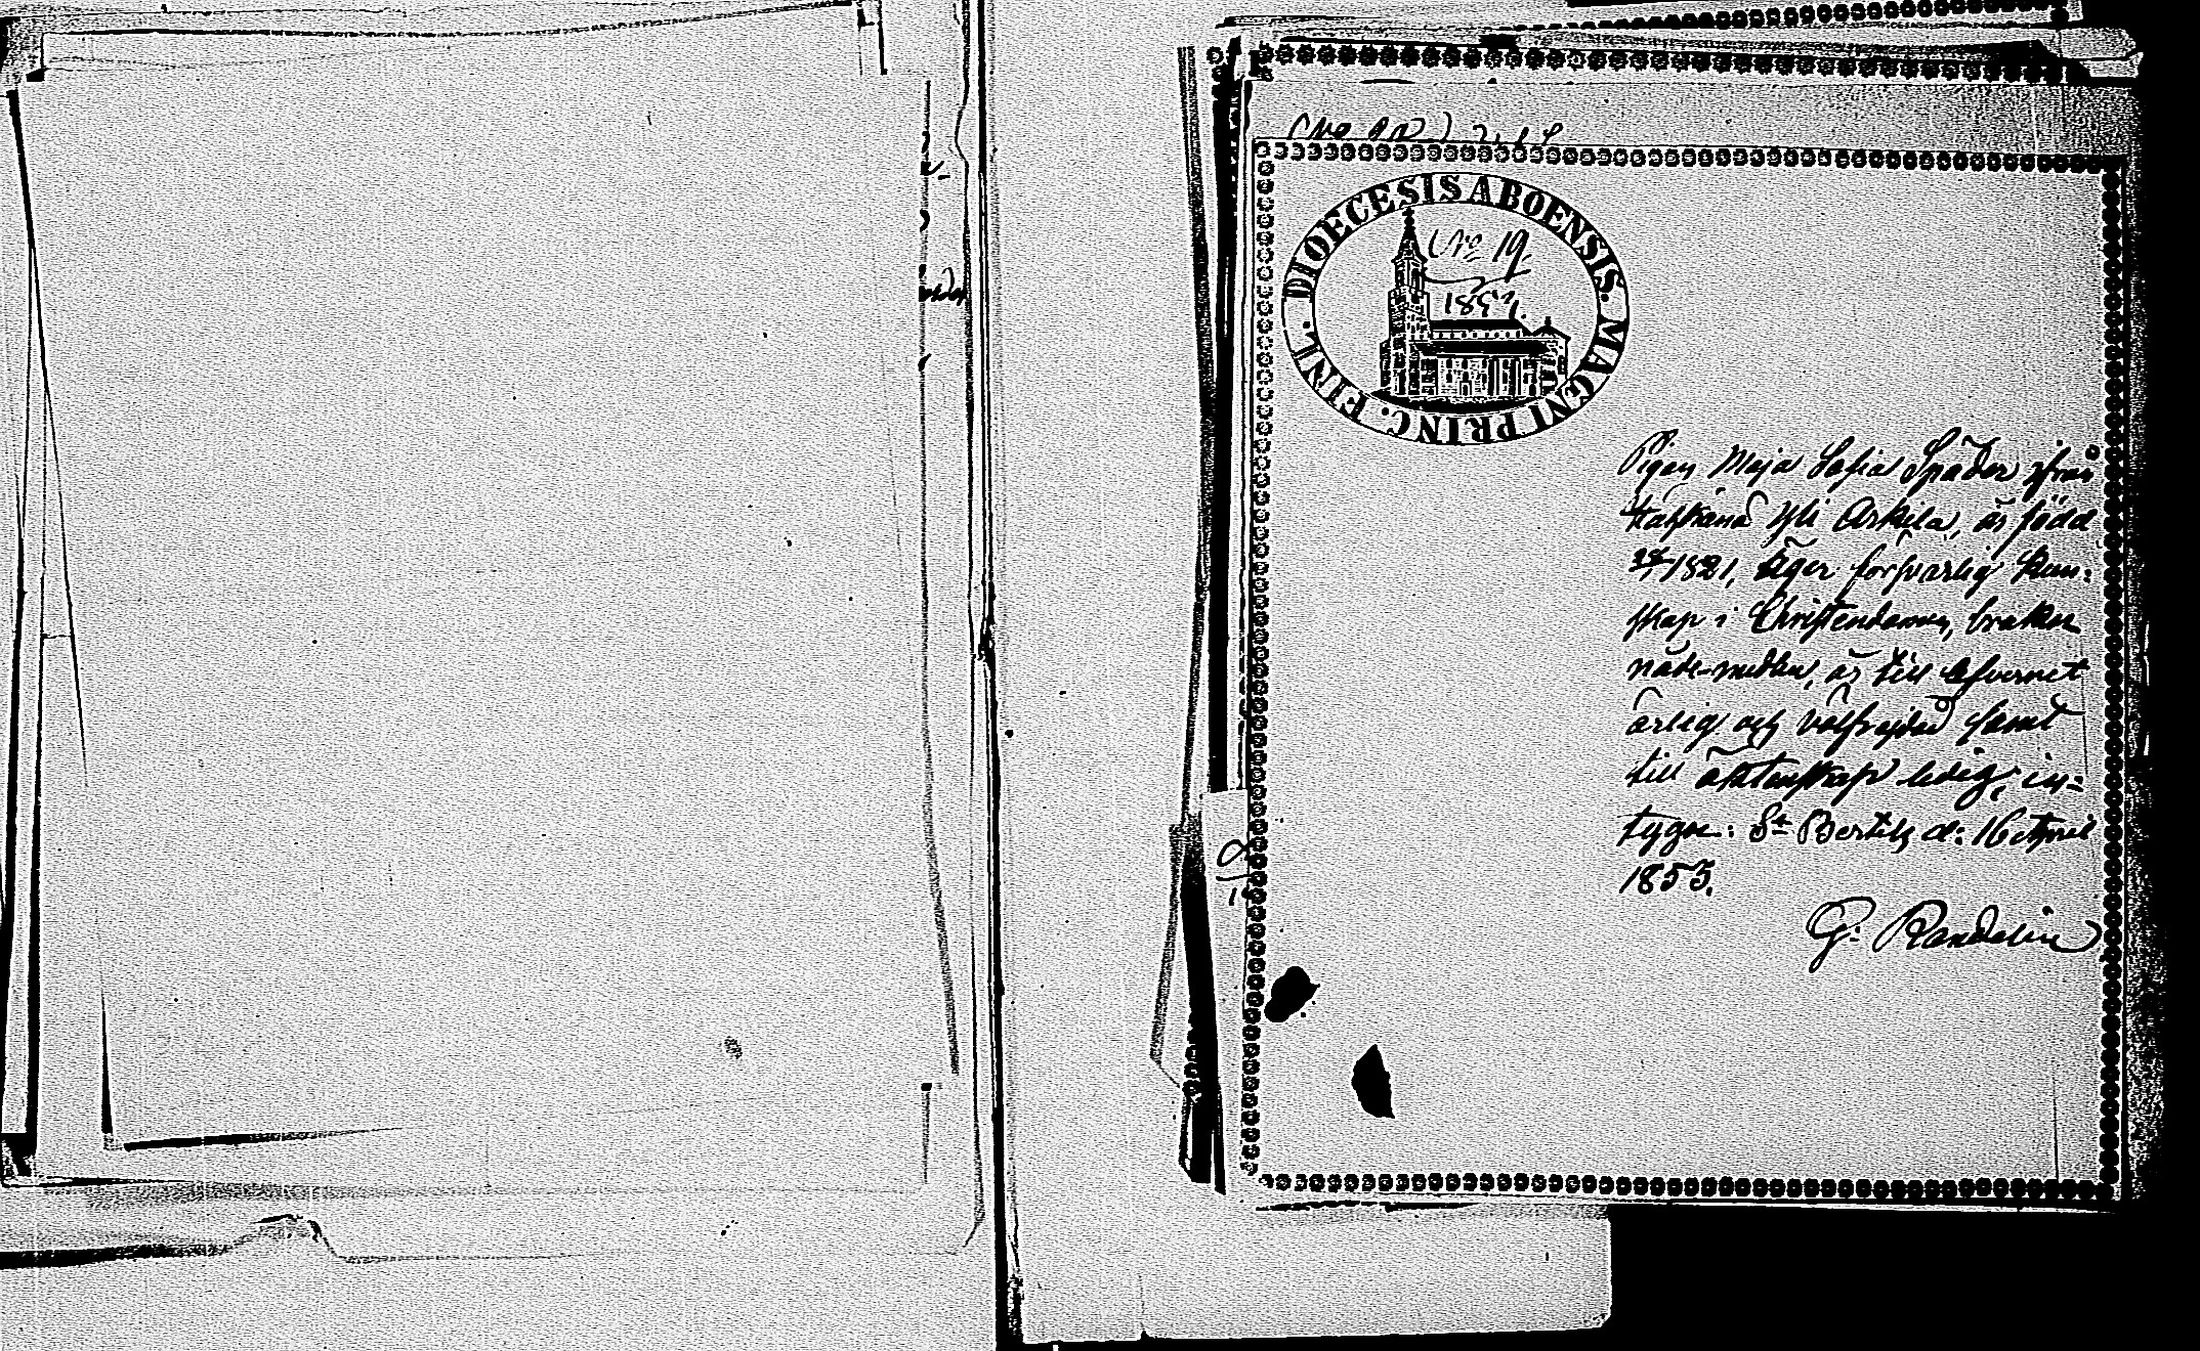 DIOECESIS ABOENSIS. MAGNI PRINC. FINL.
No 19
Pigan Maja Sofia Spåder ifrån
Yli Arkila, är född
1821, äger försvarlig kun-
skap i Christendomen, brukar
nådemedlen, är till lefvernet
ärlig och välfrejdad samt
till äktenskap ledig, in-
tygar: St Bertils d: 16 April
1855.
G: Randelin